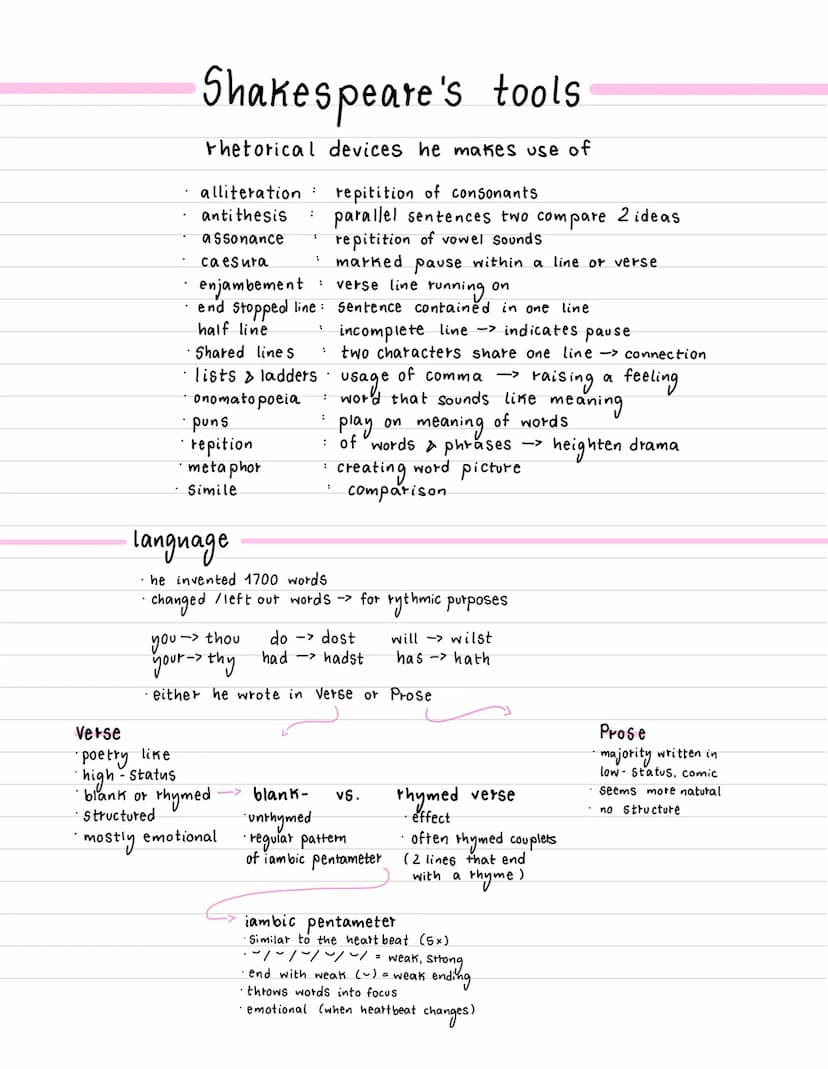 Shakespeare's tools
rhetorical devices he makes use of
· alliteration : repitition of consonants
· antithesis : parallel sentences two compare 2 ideas
· assonance : repitition of vowel sounds
· caesura : marked pause within a line or verse
· enjambement : verse line running on
· end stopped line : sentence contained in one line
half line : incomplete line -> indicates pause
· Shared lines : two characters share one line -> connection
· lists & ladders · usage of comma -> raising a feeling
· onomatopoeia : word that sounds like meaning
· puns : play on meaning of words
· repition : of words & phrases -> heighten drama
· metaphor : creating word picture
· Simile : comparison
language
· he invented 1700 words
· changed / left out words -> for rythmic purposes
you -> thou do -> dost will -> wilst
your -> thy had -> hadst has -> hath
· either he wrote in Verse or Prose
Verse
· poetry like
· high - status
· blank or rhymed ->
· structured
· mostly emotional
blank- vs. rhymed verse
· unrhymed
· regular pattern
of iambic pentameter
· effect
· often rhymed couplets
(2 lines that end
with a rhyme)
Prose
· majority written in
low - status, comic
· seems more natural
· no structure
iambic pentameter
· Similar to the heartbeat (5x)
· ⌣/⌣/⌣/⌣/⌣/ = weak, strong
· end with weak (⌣) = weak ending
· throws words into focus
· emotional (when heartbeat changes)